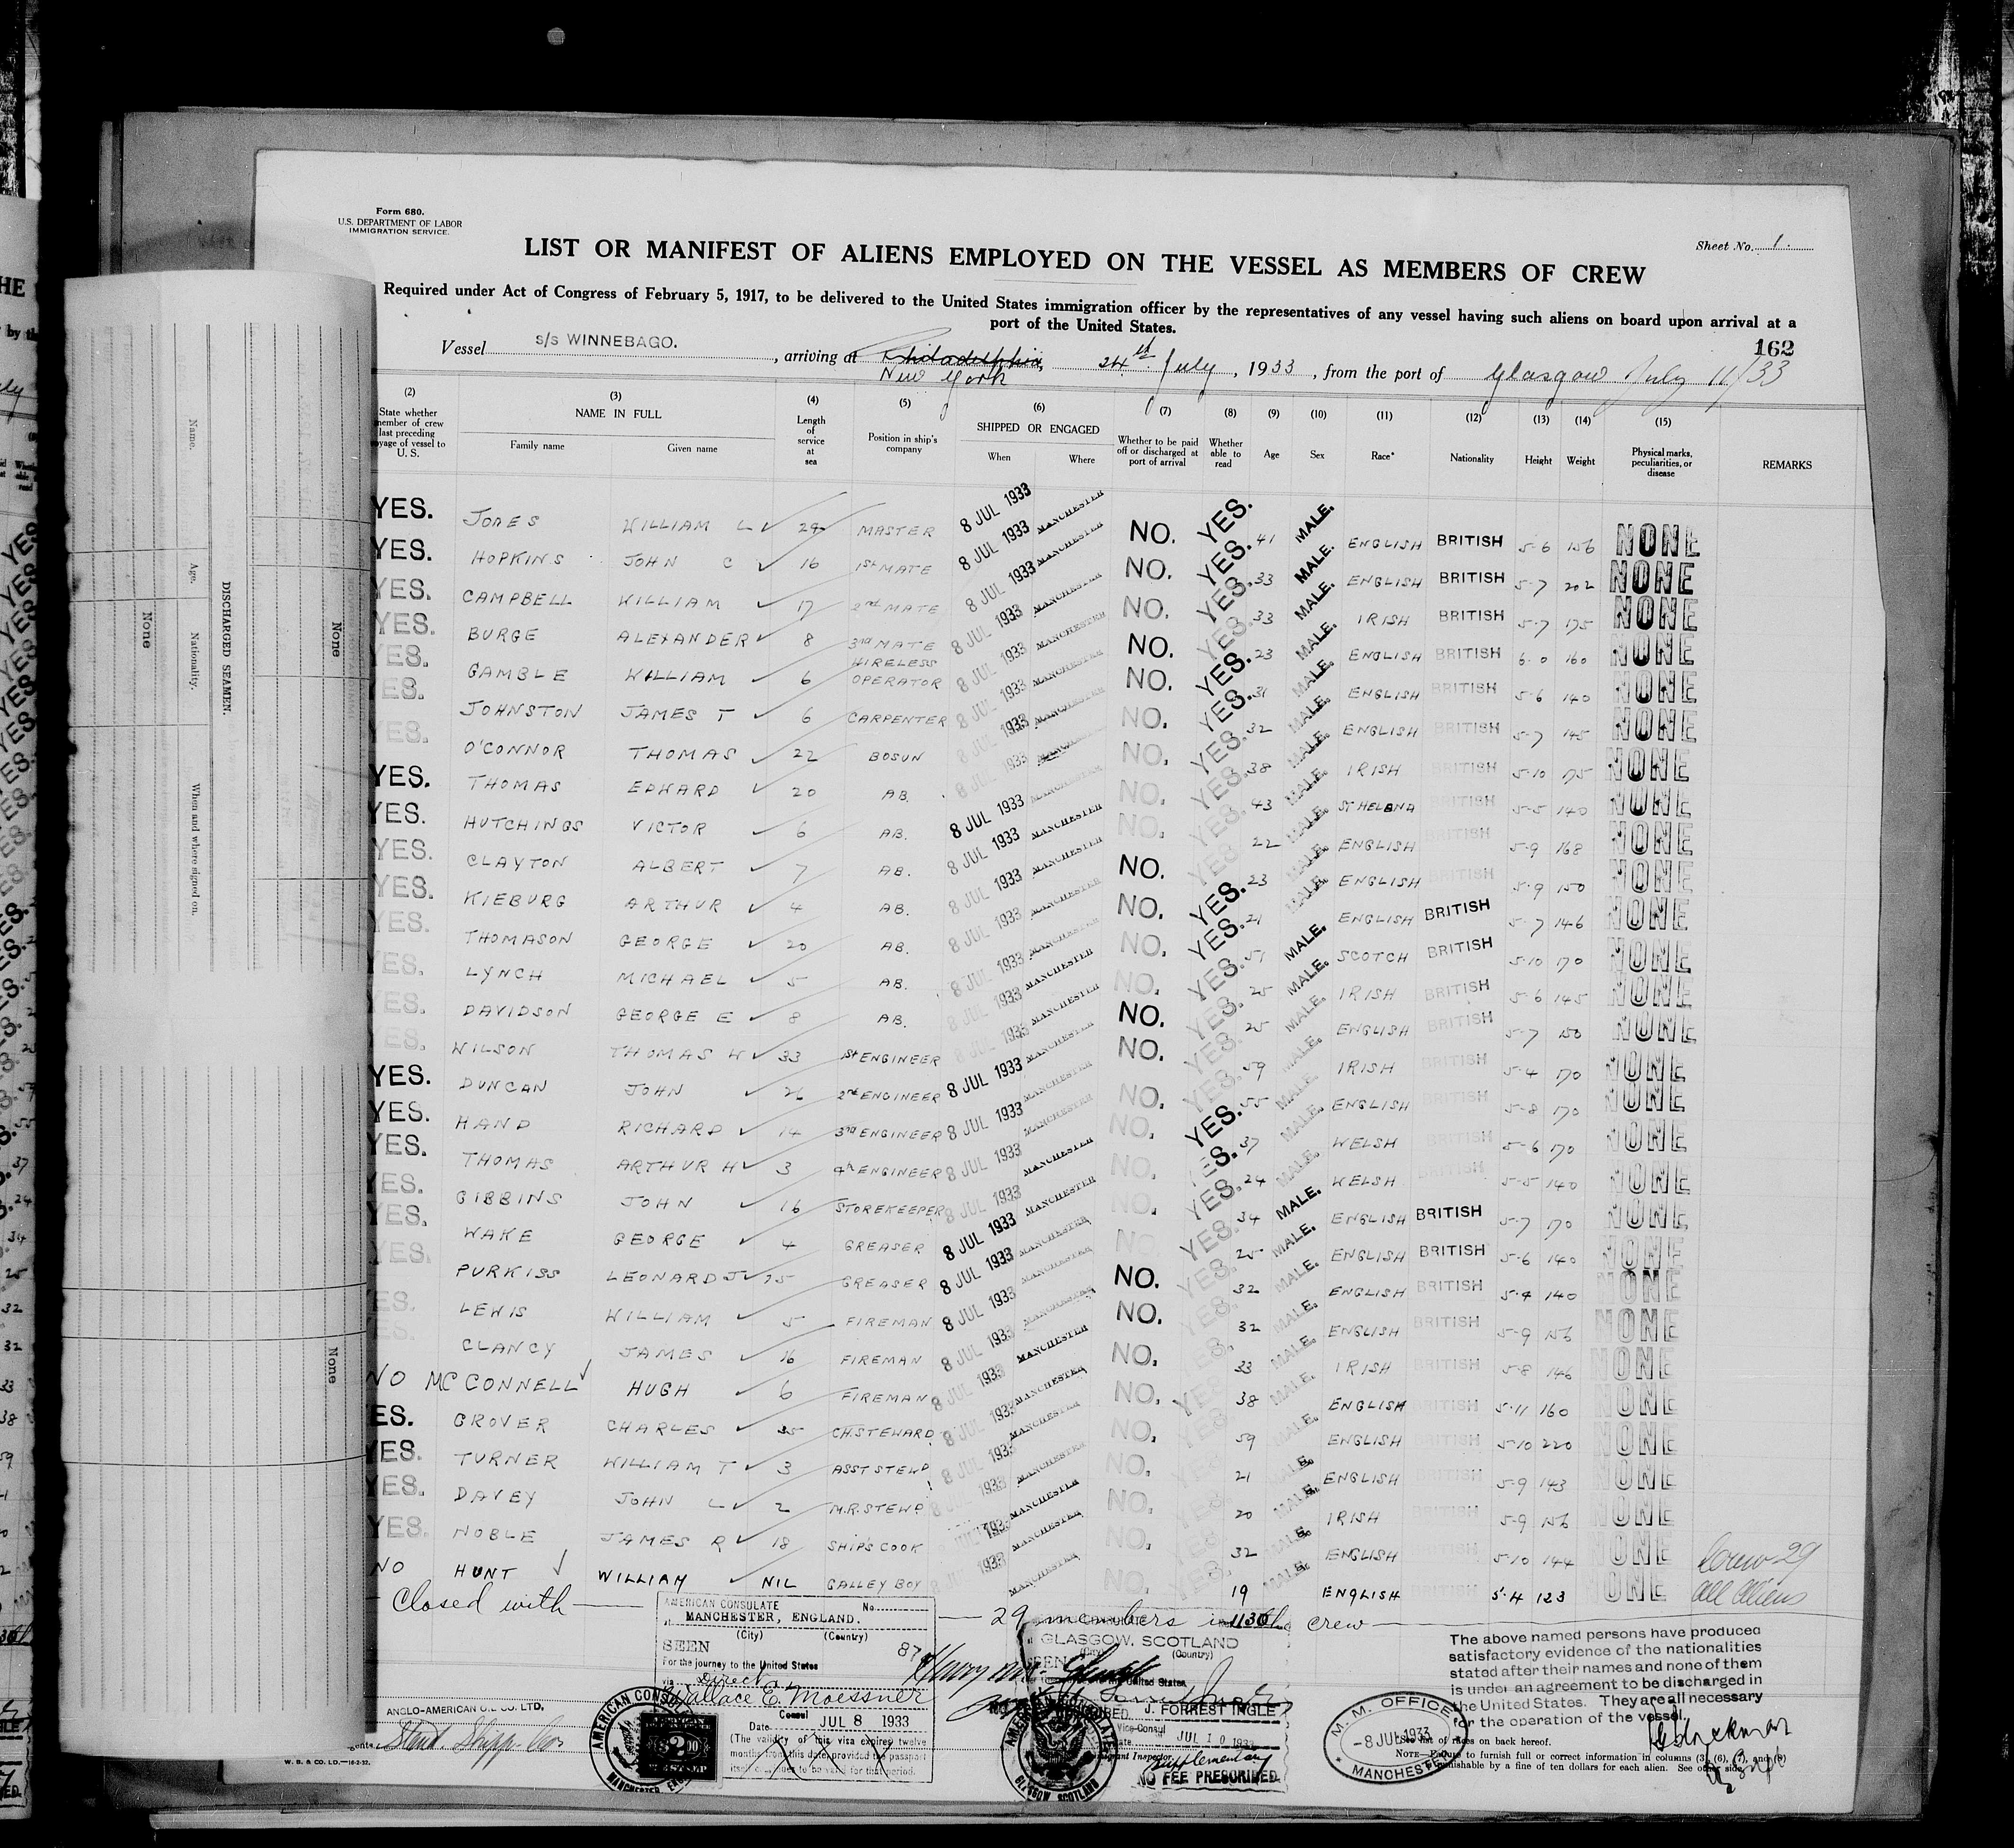 Form 680.
U.S. DEPARTMENT OF LABOR
IMMIGRATION SERVICE.
Sheet No. 1.
LIST OR MANIFEST OF ALIENS EMPLOYED ON THE VESSEL AS MEMBERS OF CREW
Required under Act of Congress of February 5, 1917, to be delivered to the United States immigration officer by the representatives of any vessel having such aliens on board upon arrival at a
port of the United States.
162
Vessel s/s WINNEBAGO. , arriving at Philadelphia, 24th July , 1933 , from the port of Glasgow July 11/33
New York
(2) (3) (4) (5) (6) (7) (8) (9) (10) (11) (12) (13) (14) (15)
State whether member of crew last preceding voyage of vessel to U. S. NAME IN FULL Family name Given name Length of service at sea Position in ship's company SHIPPED OR ENGAGED When Where Whether to be paid off or discharged at port of arrival Whether able to read Age Sex Race* Nationality Height Weight Physical marks, peculiarities, or disease REMARKS
YES. JONES WILLIAM L 29 MASTER 8 JUL 1933 MANCHESTER NO. YES. 41 MALE. ENGLISH BRITISH 5-6 156 NONE
YES. HOPKINS JOHN C 16 1st MATE 8 JUL 1933 MANCHESTER NO. YES. 33 MALE. ENGLISH BRITISH 5-7 202 NONE
YES. CAMPBELL WILLIAM 17 2nd MATE 8 JUL 1933 MANCHESTER NO. YES. 33 MALE. IRISH BRITISH 5-7 175 NONE
YES. BURGE ALEXANDER 8 3rd MATE 8 JUL 1933 MANCHESTER NO. YES. 23 MALE. ENGLISH BRITISH 6-0 160 NONE
YES. GAMBLE WILLIAM 6 WIRELESS OPERATOR 8 JUL 1933 MANCHESTER NO. YES. 31 MALE. ENGLISH BRITISH 5-6 140 NONE
YES. JOHNSTON JAMES T 6 CARPENTER 8 JUL 1933 MANCHESTER NO. YES. 32 MALE. ENGLISH BRITISH 5-7 145 NONE
YES. O'CONNOR THOMAS 22 BOSUN 8 JUL 1933 MANCHESTER NO. YES. 38 MALE. IRISH BRITISH 5-10 175 NONE
YES. THOMAS EDWARD 20 AB. 8 JUL 1933 MANCHESTER NO. YES. 43 MALE. ST HELENA BRITISH 5-5 140 NONE
YES. HUTCHINGS VICTOR 6 AB. 8 JUL 1933 MANCHESTER NO. YES. 22 MALE. ENGLISH BRITISH 5-9 168 NONE
YES. CLAYTON ALBERT 7 AB. 8 JUL 1933 MANCHESTER NO. YES. 23 MALE. ENGLISH BRITISH 5-9 150 NONE
YES. KIEBURG ARTHUR 4 AB. 8 JUL 1933 MANCHESTER NO. YES. 21 MALE. ENGLISH BRITISH 5-7 146 NONE
YES. THOMASON GEORGE 20 AB. 8 JUL 1933 MANCHESTER NO. YES. 51 MALE. SCOTCH BRITISH 5-10 170 NONE
YES. LYNCH MICHAEL 5 AB. 8 JUL 1933 MANCHESTER NO. YES. 25 MALE. IRISH BRITISH 5-6 145 NONE
YES. DAVIDSON GEORGE E 8 AB. 8 JUL 1933 MANCHESTER NO. YES. 25 MALE. ENGLISH BRITISH 5-7 150 NONE
YES. WILSON THOMAS W 33 1st ENGINEER 8 JUL 1933 MANCHESTER NO. YES. 59 MALE. IRISH BRITISH 5-4 170 NONE
YES. DUNCAN JOHN 26 2nd ENGINEER 8 JUL 1933 MANCHESTER NO. YES. 55 MALE. ENGLISH BRITISH 5-8 170 NONE
YES. HAND RICHARD 14 3rd ENGINEER 8 JUL 1933 MANCHESTER NO. YES. 37 MALE. WELSH BRITISH 5-6 170 NONE
YES. THOMAS ARTHUR H 3 4th ENGINEER 8 JUL 1933 MANCHESTER NO. YES. 24 MALE. WELSH BRITISH 5-5 140 NONE
YES. GIBBINS JOHN 16 STOREKEEPER 8 JUL 1933 MANCHESTER NO. YES. 34 MALE. ENGLISH BRITISH 5-7 170 NONE
YES. WAKE GEORGE 4 GREASER 8 JUL 1933 MANCHESTER NO. YES. 25 MALE. ENGLISH BRITISH 5-6 140 NONE
YES. PURKISS LEONARD J 15 GREASER 8 JUL 1933 MANCHESTER NO. YES. 32 MALE. ENGLISH BRITISH 5-4 140 NONE
YES. LEWIS WILLIAM 5 FIREMAN 8 JUL 1933 MANCHESTER NO. YES. 32 MALE. ENGLISH BRITISH 5-9 156 NONE
YES. CLANCY JAMES 16 FIREMAN 8 JUL 1933 MANCHESTER NO. YES. 33 MALE. IRISH BRITISH 5-8 146 NONE
NO MCCONNELL HUGH 6 FIREMAN 8 JUL 1933 MANCHESTER NO. YES 38 MALE. ENGLISH BRITISH 5-11 160 NONE
YES. GROVER CHARLES 35 CH.STEWARD 8 JUL 1933 MANCHESTER NO. YES 59 MALE. ENGLISH BRITISH 5-10 220 NONE
YES. TURNER WILLIAM T 3 ASST STEWD 8 JUL 1933 MANCHESTER NO. YES 21 MALE. ENGLISH BRITISH 5-9 143 NONE
YES. DAVEY JOHN L 2 M.R.STEWD. 8 JUL 1933 MANCHESTER NO. YES 20 MALE. IRISH BRITISH 5-9 156 NONE
YES. NOBLE JAMES R 18 SHIP'S COOK JUL 1933 MANCHESTER NO. YES 32 MALE. ENGLISH BRITISH 5-10 144 NONE Crew 29
NO HUNT WILLIAM NIL GALLEY BOY 8 JUL 1933 MANCHESTER NO. YES. 19 MALE. ENGLISH BRITISH 5-4 123 NONE all aliens
Closed with 29 members in the crew
AMERICAN CONSULATE No. 87
at MANCHESTER, ENGLAND.
(City) (Country)
SEEN
For the journey to the United States
via Direct
Wallace E. Moessner
Consul
Date JUL 8 1933
(The validity of this visa expires twelve
months from this date, provided the passport
itself continues to be valid for that period.
AMERICAN CONSULATE
MANCHESTER
$2.00
1130
GLASGOW, SCOTLAND
(City) (Country)
SEEN
United States
J. FORREST INGLE
Vice-Consul
Date JUL 10 1933
Immigrant Inspector.
Supplementary
NO FEE PRESCRIBED.
AMERICAN CONSULATE
GLASGOW, SCOTLAND
The above named persons have produced
satisfactory evidence of the nationalities
stated after their names and none of them
is under an agreement to be discharged in
the United States. They are all necessary
for the operation of the vessel.
M. M. OFFICE
-8 JUL 1933
MANCHESTER
*See list of races on back hereof.
NOTE.—Failure to furnish full or correct information in columns (3), (6), (7), and (8)
is punishable by a fine of ten dollars for each alien. See other side.
ANGLO-AMERICAN OIL CO. LTD,
Stand. Shipp. Co.
Agents.
W. B. & CO. LD.—16-2-32.
DISCHARGED SEAMEN.
Name. Age. Nationality. When and where signed on.
None
None
None